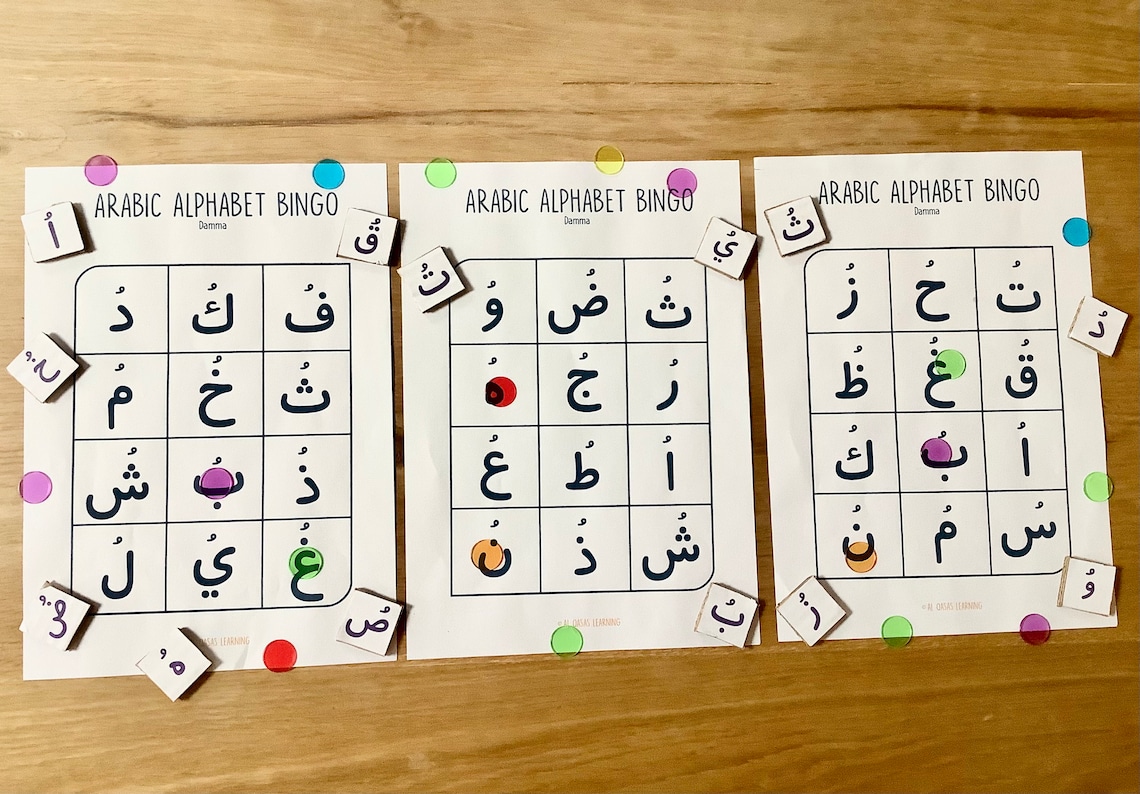 ARABIC ALPHABET BINGO
Damma
أُ
قُ
فُ كُ دُ
ثُ خُ مُ
ذُ بُ شُ
غُ يُ لُ
صُ
هُ
QASAS LEARNING
ARABIC ALPHABET BINGO
Damma
يُ
ثُ ضُ وُ
رُ جُ هُ
اُ طُ عُ
شُ ذُ نُ
بُ
© AL QASAS LEARNING
ARABIC ALPHABET BINGO
Damma
ثُ
دُ
تُ حُ زُ
قُ غُ ظُ
اُ بُ كُ
سُ مُ نُ
وُ
زُ
© AL QASAS LEARNING